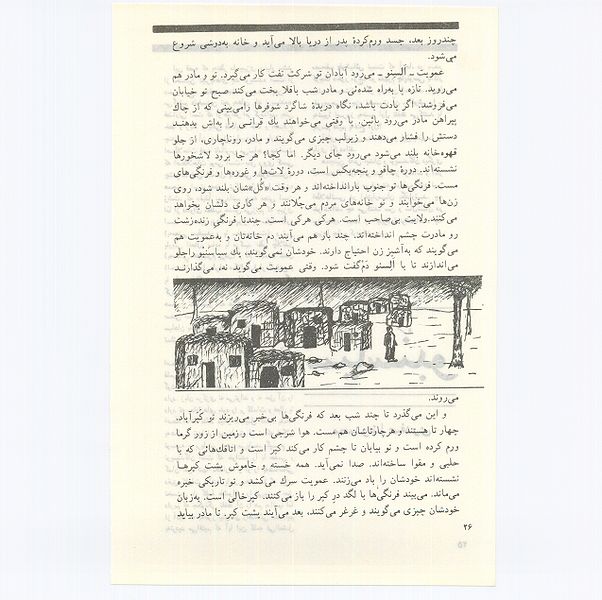 چندروز بعد، جسد ورم‌کردهٔ پدر از دریا بالا می‌آید و خانه به‌دوشی شروع
می‌شود.
عمویت ـ اَلسنو ـ می‌رود آبادان تو شرکت نفت کار می‌گیرد. تو و مادر هم
می‌روید. تازه پا به‌راه شده‌ئی و مادر شب باقلا پخت می‌کند صبح تو خیابان
می‌فروشد. اگر یادت باشد، نگاه دریدهٔ شاگرد شوفرها را می‌بینی که از چاك
پیراهن مادر می‌رود پائین. یا وقتی می‌خواهند یك قرانی را به‌اش بدهند
دستش را فشار می‌دهند و زیرلب چیزی می‌گویند و مادر، از جلو
قهوه‌خانه بلند می‌شود می‌رود جای دیگر. اما کجا؟ هر جا برود لاشخورها
نشسته‌اند. دورهٔ چاقو و پنجه‌بکس است، دورهٔ لات‌ها و غوره‌ها و فرنگی‌های
مست. فرنگی‌ها تو جنوب بارانداخته‌اند و هر وقت «گل»شان بلند شود، روی
زن‌ها می‌خوابند و تو خانه‌های مردم می‌چلانند و هر کاری دلشان بخواهد
می‌کنند. ولایت بی‌صاحب است. هرکی هرکی است. چندتا فرنگی گنده‌زشت
رو مادرت چشم انداخته‌اند. چند بار هم می‌آیند دم خانه‌تان و به‌عمویت هم
می‌گویند که به‌آشپز زن احتیاج دارند. خودشان نمی‌گویند، یك سیاسنبو را جلو
می‌اندازند تا با اَلسنو دَم‌گفت شود. وقتی عمویت می‌گوید نه، می‌گذارند
می‌روند.
و این می‌گذرد تا چند شب بعد که فرنگی‌ها بی‌خبر می‌ریزند تو کَپَرآباد.
چهار تا هستند و هرچارتاشان هم مست. هوا شرجی است و زمین از زور گرما
ورم کرده است و تو بیابان تا چشم کار می‌کند کپر است و اتاقك‌هائی که با
حلبی و مقوا ساخته‌اند. صدا نمی‌آید. همه خسته و خاموش پشت کپرها
نشسته‌اند خودشان را باد می‌زنند. عمویت سرك می‌کشد و تو تاریکی خیره
می‌ماند. می‌بیند فرنگی‌ها با لگد در کپر را باز می‌کنند. کپرخالی است. به‌زبان
خودشان چیزی می‌گویند و غرغر می‌کنند، بعد می‌آیند پشت کپر. تا مادر بیاید
۲۶